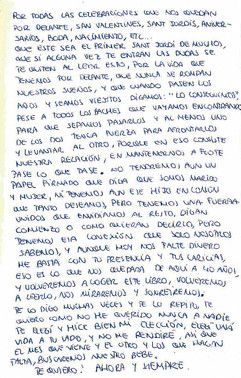 POR TODAS LAS CELEBRACIONES QUE NOS QUEDAN
POR DELANTE, SAN VALENTINES, SANT JORDIS, ANIVER-
SARIOS, BODA, NACIMIENTO, ETC...
QUE ESTE SEA EL PRIMER SANT JORDI DE MUCHOS,
QUE SI ALGUNA VEZ TE ENTRAN LAS DUDAS SE
TE QUITEN AL LEER ESTO, POR LA VIDA QUE
TENEMOS POR DELANTE, QUE NUNCA SE ROMPAN
NUESTROS SUEÑOS, Y QUE CUANDO PASEN LOS
AÑOS Y SEAMOS VIEJITOS DIGAMOS: "LO CONSEGUIMOS",
PESE A TODOS LOS BACHES QUE VAYAMOS ENCONTRANDO,
PARA QUE SEPAMOS PASARLOS Y AL MENOS UNO
DE LOS DOS TENGA FUERZA PARA AFRONTARLOS
Y LEVANTAR AL OTRO, PORQUE EN ESO CONSISTE
NUESTRA RELACIÓN, EN MANTENERNOS A FLOTE
PASE LO QUE PASE. NO TENDREMOS AUN UN
PAPEL FIRMADO QUE DIGA QUE SOMOS MARIDO
Y MUJER, NI TENEMOS AUN ESE HIJO EN COMÚN
QUE TANTO DESEAMOS, PERO TENEMOS UNA FUERZA
UNIDOS QUE ENVIDIAMOS AL RESTO, DIGAN
COMO QUIERAN DECIRLO, PERO
TENEMOS ESA CONEXIÓN QUE SOLO NOSOTROS
SABEMOS, Y AUNQUE HOY NOS FALTE DINERO
ME BASTA CON TU PRESENCIA Y TUS CARICIAS,
ESO ES LO QUE NOS QUEDARÁ DE AQUÍ A 40 AÑOS,
Y VOLVEREMOS A COGER ESTE LIBRO, VOLVEREMOS
A LEERLO, NOS MIRAREMOS Y SONREIREMOS.
TE LO DIGO MUCHAS VECES Y TE LO REPITO, TE
QUIERO COMO NO HE QUERIDO NUNCA A NADIE
TE ELEGÍ E HICE BIEN MI ELECCIÓN, ELEGÍ UNA
VIDA A TU LADO, Y NO ME RENDIRÉ, ASÍ QUE
EL MES QUE VIENE Y EL OTRO Y LOS QUE HAGAN
FALTA, BUSCAREMOS NUESTRO BEBÉ.
TE QUIERO! AHORA Y SIEMPRE.